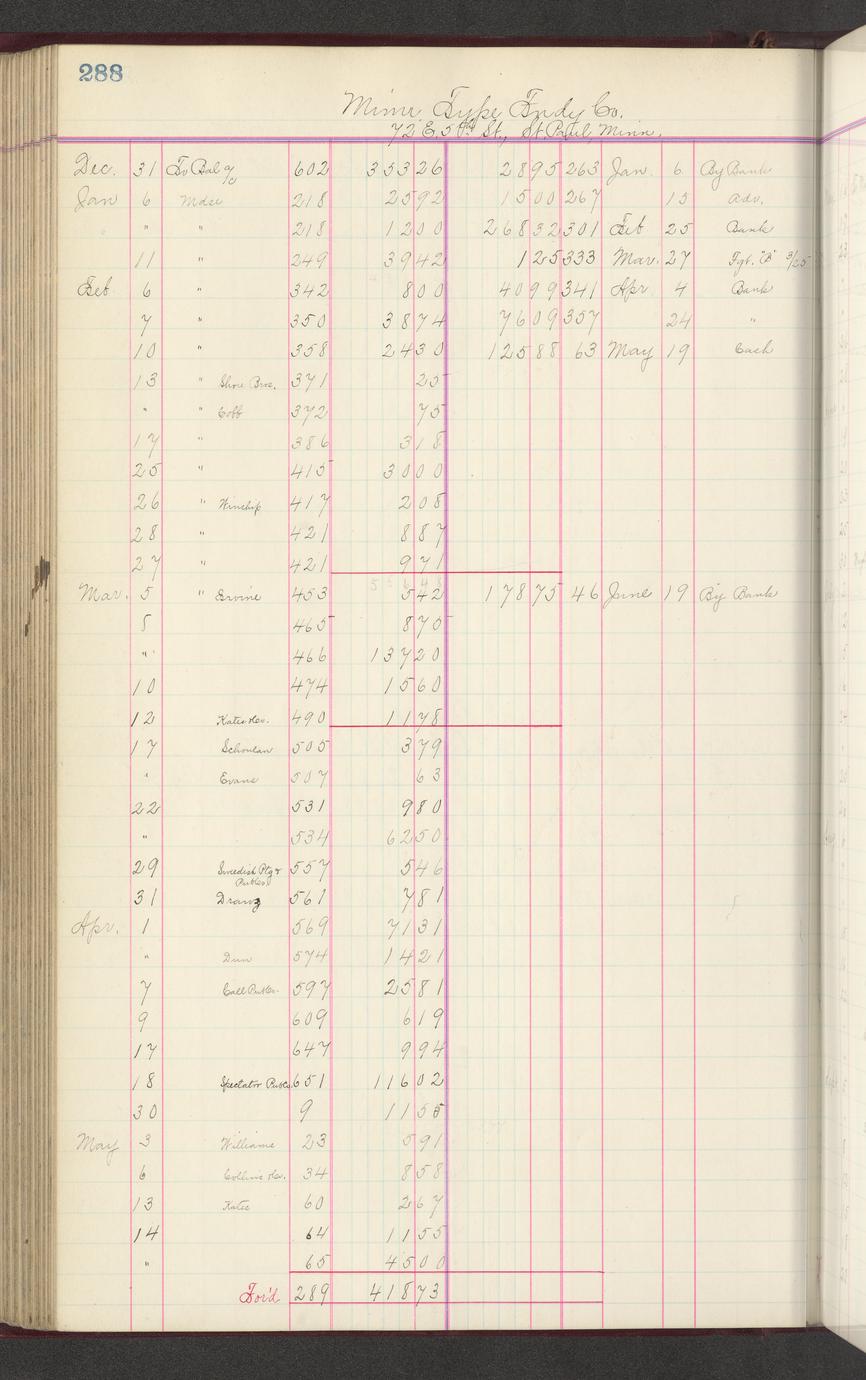 288
Minn. Type Fndy Co.
72 E. 5th St., St. Paul, Minn.
Dec. 31 To Bal a/c 602 353 26 28 95 263 Jan. 6 By Bank
Jan 6 Mdse 218 25 92 15 00 267 15 Adv.
" " " 218 12 00 268 32 301 Feb 25 Bank
11 " 249 39 42 1 25 333 Mar. 27 Fgt. "B" 3/25
Feb. 6 " 342 8 00 40 99 341 Apr 4 Bank
7 " 350 38 74 76 09 357 24 "
10 " 358 24 30 125 88 63 May 19 Cash
13 " Shore Bros. 371 25
" " Cobb 372 75
17 " 386 3 18
25 " 415 30 00
26 " Winship 417 2 08
28 " 421 8 87
27 " 421 9 71
Mar. 5 " Ervine 453 5 42 178 75 46 June 19 By Bank
5 465 8 75
" 466 137 20
10 474 15 60
12 Kates 490 11 78
17 505 3 79
" Evans 507 63
22 531 9 80
" 534 62 50
29 Swedish Ptg & 557 5 46
31 561 7 81
Apr. 1 569 71 31
" Dun 574 14 21
7 Call 597 25 81
9 609 6 19
17 647 9 94
18 Spectator 651 116 02
30 9 11 55
May 3 Williams 23 5 91
6 Collins 34 8 58
13 Kates 60 2 67
14 64 11 55
" 65 45 00
For'd 289 418 73